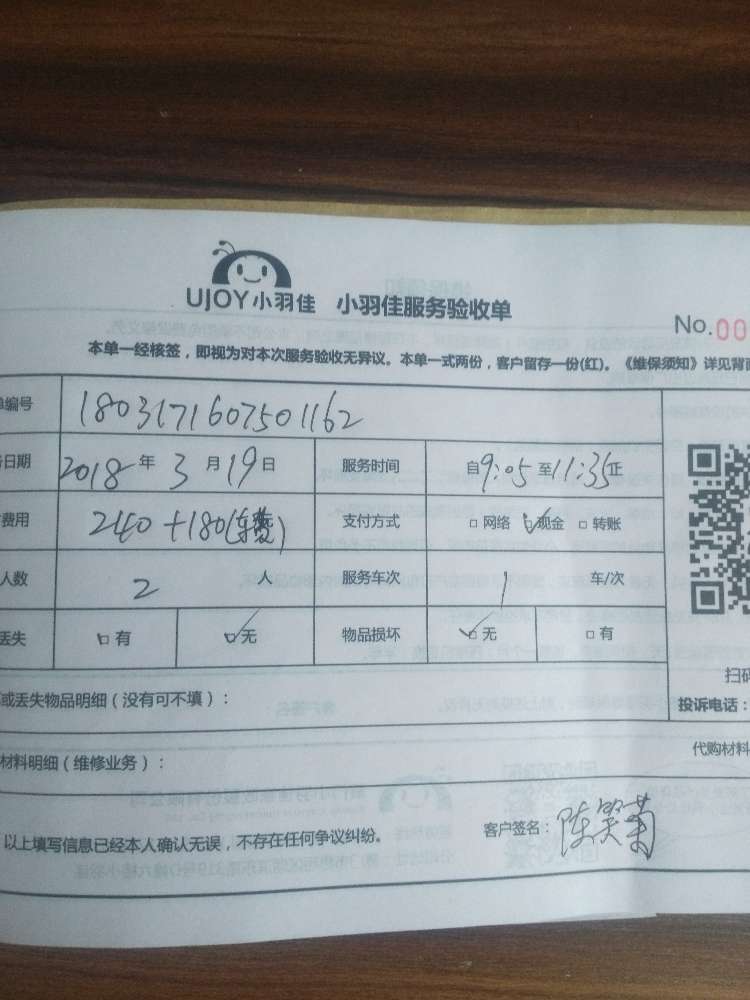 UJOY小羽佳 小羽佳服务验收单
No.00
本单一经核签，即视为对本次服务验收无异议。本单一式两份，客户留存一份(红)。《维保须知》详见背面
编号 1803171607501162
日期 2018年3月19日 服务时间 自9:05至11:35止
费用 240+180(车费) 支付方式 □网络 ☑现金 □转账
人数 2人 服务车次 1 车/次
丢失 □有 ☑无 物品损坏 ☑无 □有
或丢失物品明细（没有可不填）：
扫码
投诉电话：
材料明细（维修业务）：
代购材料
以上填写信息已经本人确认无误，不存在任何争议纠纷。 客户签名：陈笑菊